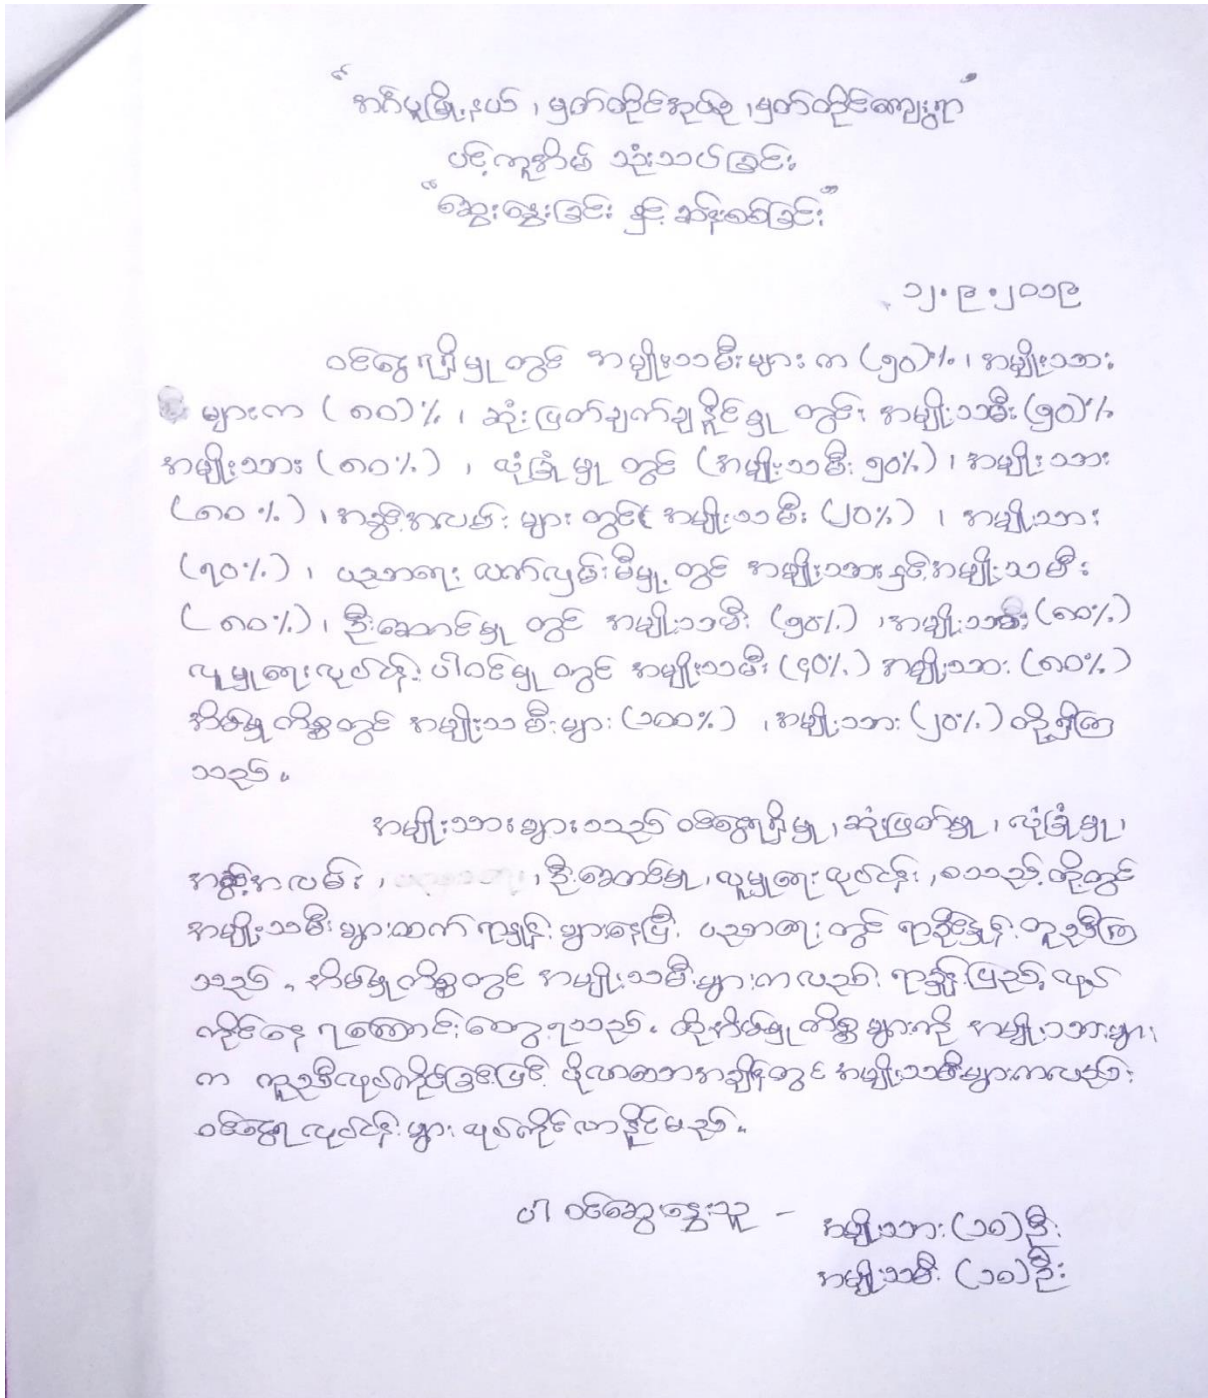 “အင်္ဂပူမြို့နယ်၊ မှတ်တိုင်အုပ်စု၊ မှတ်တိုင်ကျေးရွာ”
ပင့်ကူအိမ် သုံးသပ်ခြင်း
“ဆွေးနွေးခြင်း နှင့် ဆန်းစစ်ခြင်း”
၁၂.၉.၂၀၁၉
ဝင်ငွေရရှိမှု တွင် အမျိုးသမီးများ က (၅၀)%၊ အမျိုးသား
များက (၈၀)%၊ ဆုံးဖြတ်ချက်ချနိုင်မှု တွင် အမျိုးသမီး (၅၀)%
အမျိုးသား (၈၀%)၊ လုံခြုံမှု တွင် (အမျိုးသမီး ၅၀%)၊ အမျိုးသား
(၈၀%)၊ အခွင့်အလမ်း များ တွင် အမျိုးသမီး (၂၀%)၊ အမျိုးသား
(၇၀%)၊ ပညာရေး လက်လှမ်းမီမှု တွင် အမျိုးသားနှင့် အမျိုးသမီး
(၈၀%)၊ ဦးဆောင်မှု တွင် အမျိုးသမီး (၅၀%)၊ အမျိုးသား (၈၀%)
လူမှုရေးလုပ်ငန်း ပါဝင်မှု တွင် အမျိုးသမီး (၄၀%) အမျိုးသား (၈၀%)
အိမ်မှုကိစ္စတွင် အမျိုးသမီးများ (၁၀၀%)၊ အမျိုးသား (၂၀%) တို့ရှိကြ
သည်။
အမျိုးသားများသည် ဝင်ငွေရရှိမှု၊ ဆုံးဖြတ်မှု၊ လုံခြုံမှု၊
အခွင့်အလမ်း၊ ၊ ဦးဆောင်မှု၊ လူမှုရေးလုပ်ငန်း၊ စသည့်တို့တွင်
အမျိုးသမီးများထက် ရာနှုန်းများနေပြီး ပညာရေးတွင် ရာခိုင်နှုန်းတူညီကြ
သည်။ အိမ်မှုကိစ္စတွင် အမျိုးသမီးများကလည်း ရာနှုန်းပြည့် လုပ်
ကိုင်နေ ရကြောင်းတွေ့ရသည်။ ထိုအိမ်မှုကိစ္စများကို အမျိုးသားများ
က ကူညီလုပ်ကိုင်ခြင်းဖြင့် ပိုလာသောအချိန်တွင် အမျိုးသမီးများကလည်း
ဝင်ငွေရလုပ်ငန်းများ လုပ်ကိုင်လာနိုင်မည်။
ပါဝင်ဆွေးနွေးသူ – အမျိုးသား (၁၈) ဦး
အမျိုးသမီး (၁၈) ဦး